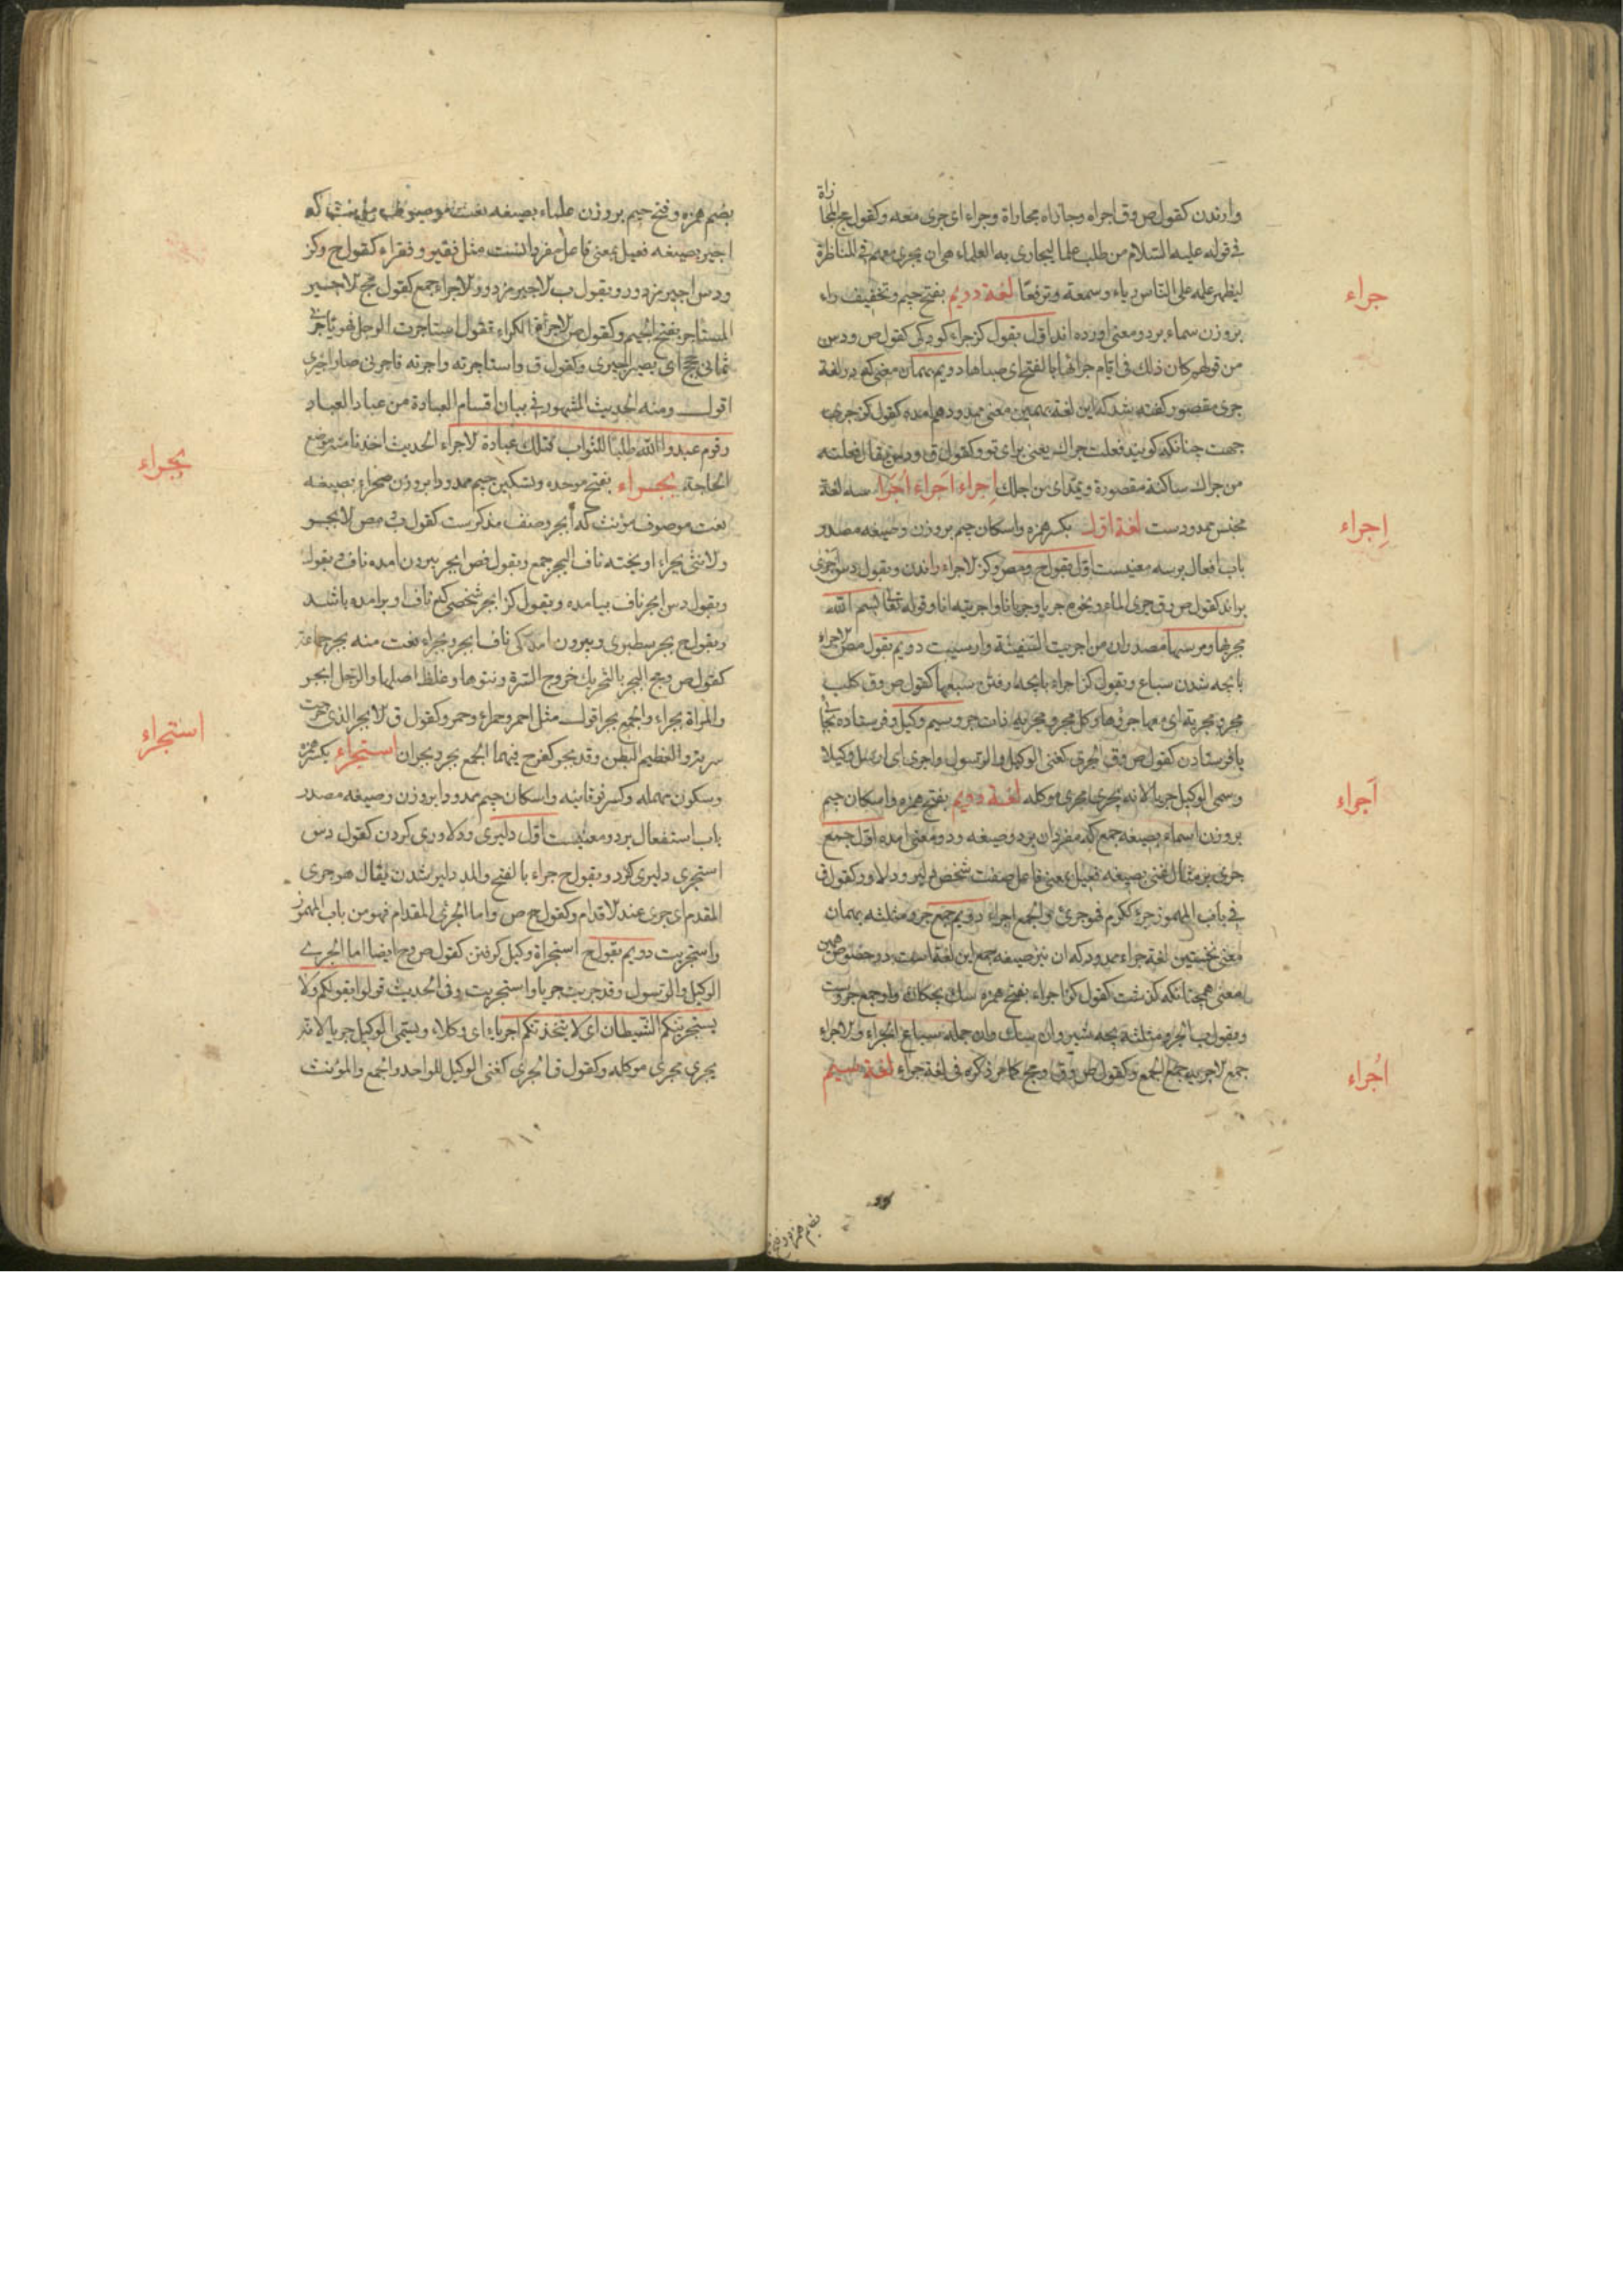 وارندن كقول ص وق اجراه وجاراه مجاراة وجراء اى جرى معه وكقول مج المجاراة
فى قوله عليه السلام من طلب علما ليجارى به العلماء هى ان يجرى معهم فى المناظرة
ليظهر علمه على الناس رياء وسمعة وترفعا لغة دويم بفتح جيم وتخفيف راء
بر وزن سماء بر دو معنى اورده اند اول بقول كز جراء كودكى كقول ص ودس
من قولهم كان ذلك فى ايام جرائها بالفتح اى صباها دويم بهمان معنى كه در لغة
جرى مقصور كفته شد كه اين لغة بهمين معنى ممدود هم امده كقول كز جرى
جهت چنانكه كويند فعلت جراك يعنى براى تو وكقول ق و يقال فعلته
من جراك ساكنة مقصورة ويمد اى من اجلك اِجراء اَجراء اُجَرَاء سه لغة
مجنس ممدودست لغة اول بكسر همزه واسكان جيم بر وزن وصيغه مصدر
باب افعال بر سه معنيست اول بقول ح ومص وكز الاجراء راندن وبقول دس اجرى
براند كقول ص وق جرى الماء ونحوه جريا وجريانا واجريته انا وقوله تعالى بسم الله
مجريها ومرسيها مصدران من اجريت السفينة وارسيت دويم بقول مص الاجراء
بابچه شدن سباع وبقول كز اجراء بابچه رفتن سبعها كقول ص وق كلب
مجر ومجرية اى معها جروها وكل مجر ومجرية ذات جرو سيم وكيل وفرستاده بجائى
يا فرستادن كقول ص وق الجرى كغنى الوكيل والرسول واجرى اى ارسل وكيلا
وسمى الوكيل جريا لانه يجرى مجرى موكله لغة دويم بفتح همزه واسكان جيم
بر وزن اسماء بصيغه جمع كه مفردان بر دو صيغه ودو معنى امده اول جمع
جرى بر مثال غنى بصيغه فعيل بمعنى فاعل صفت شخص دلير ودلاور كقول ق
فى باب المهموز جرء ككرم فهو جرئ والجمع اجراء دويم جمع جرو مثلثه بهمان
معنى نخستين لغة جراء ممدود كه ان نيز صيغه جمع اين لغة است بدو خصوص همين
معنى همچنانكه كذشت كقول كز اجراء بفتح همزه سك بچكان واو جمع جروست
وبقول ب الجرو مثلثه بچه شير وان سك وان جمله سباع الجراء والاجراء
جمع الاجرية جمع الجمع وكقول ص وق ومج كما مر ذكره فى لغة جراء لغة سيم
جراء
اِجراء
اَجراء
اُجراء
بضم همزه وفتح
بضم همزه وفتح جيم بر وزن علماء بصيغه نعت موصوف كه
اجير بصيغه فعيل بمعنى فاعل مفرد انست مثل فقير وفقراء كقول ح وكز
ودس اجير مزدور وبقول ب الاجير مزدور والاجراء جمع كقول مج الاجير
المستاجر بفتح الجيم وكقول ص الاجرة الكراء تقول استاجرت الرجل فهو ياجرنى
ثمانى حجج اى يصير اجيرى وكقول ق واستاجرته واجرته فاجرنى صار اجيرى
اقول ومنه الحديث المشهور فى بيان اقسام العبادة من عباد العباد
وقوم عبدوا الله طلبا للثواب فتلك عبادة الاجراء الحديث اخذنا منه موضع
الحاجة بجراء بفتح موحده وتسكين جيم ممدودا بر وزن صحراء بصيغه
نعت موصوف مؤنث كه ابجر وصنف مذكرست كقول ق مص الابجر
والانثى بجراء اويخته ناف البجر جمع وبقول فص ابجر بيرون امده ناف وبقول
وبقول دس ابجر ناف بيامده وبقول كز ابجر شخصى كه ناف او برامده باشد
وبقول ح بجر سطبرى وبيرون امدكى ناف ابجر وبجراء نعت منه بجر جماعة
كقول ص ومج البجر بالتحريك خروج السرة ونتوها وغلظ اصلها والرجل ابجر
والمراة بجراء والجمع بجر اقول مثل احمر وحمراء وحمر وكقول ق الابجر الذى خرجت
سرته والعظيم البطن وقد بجر كفرح فيهما الجمع بجر وبجران استجراء بكسر همزه
وسكون مهمله وكسر فوقانيه واسكان جيم ممدودا بر وزن وصيغه مصدر
باب استفعال بر دو معنيست اول دليرى ودلاورى كردن كقول دس
استجرى دليرى كرد وبقول ح جراء بالفتح والمد دلير شدن يقال هو جرى
المقدم اى جرى عند الاقدام وكقول ح ص واما الجرئ المقدام فهو من باب المهموز
واستجريت دويم بقول ح استجراة وكيل كرفتن كقول ص وح ايضا اما الجرى
الوكيل والرسول وقد جريت جريا واستجريت وفى الحديث قولوا بقولكم ولا
يستجرينكم الشيطان اى لا يتخذنكم اجرياء اى وكلاء ويسمى الوكيل جريا لانه
يجرى مجرى موكله وكقول ق الجرى كغنى الوكيل للواحد والجمع والمؤنث
بجراء
استجراء